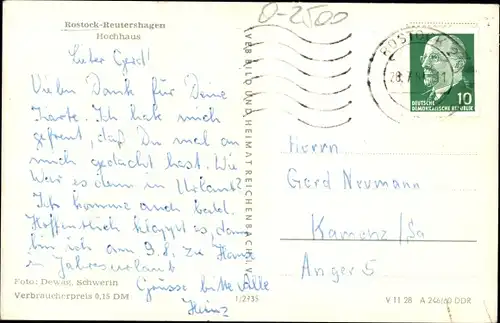 Rostock-Reutershagen
Hochhaus
0-2500
Lieber Gerd!
Vielen Dank für Deine
Karte. Ich habe mich
gefreut, daß Du mal an
mich gedacht hast. Wie
war es denn im Urlaub?
Ich komme auch bald.
Hoffentlich klappt es, dann
bin ich am 9.8. zu Hause
in Jahresurlaub
Grüsse bitte Alle
Heinz
Foto: Dewag, Schwerin
Verbraucherpreis 0,15 DM
1/2735
VERBILD UND HEIMAT REICHENBACH I. V.
ROSTOCK
28.7.
DEUTSCHE
DEMOKRATISCHE REPUBLIK
10
Herrn
Gerd Neumann
Kamenz/Sa
Anger 5
V 11 28 A 246/60 DDR